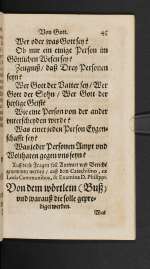 Von Gott. 45
Wer oder was Gott sey?
Ob nur ein einige Person im
Göttlichen Wesen sey?
Zeugnuß / daß Drey Personen
seyn?
Wer Gott der Vatter sey / Wer
Gott der Sohn / Wer Gott der
heylige Geist?
Wie eine Person von der ander
unterscheiden werde?
Was einer jeden Person Eygen-
schafft sey?
Was jeder Personen Ampt vnd
Wolthaten gegen vns seyn?
Auff diese Fragen soll Antwort vnd Bericht
genommen werden / auß dem Catechismo, ex
Locis Communibus, & Examine D. Philippi.
Von dem wörtlein (Buß)
vnd warauß die solle gepre-
diget werden.
Was